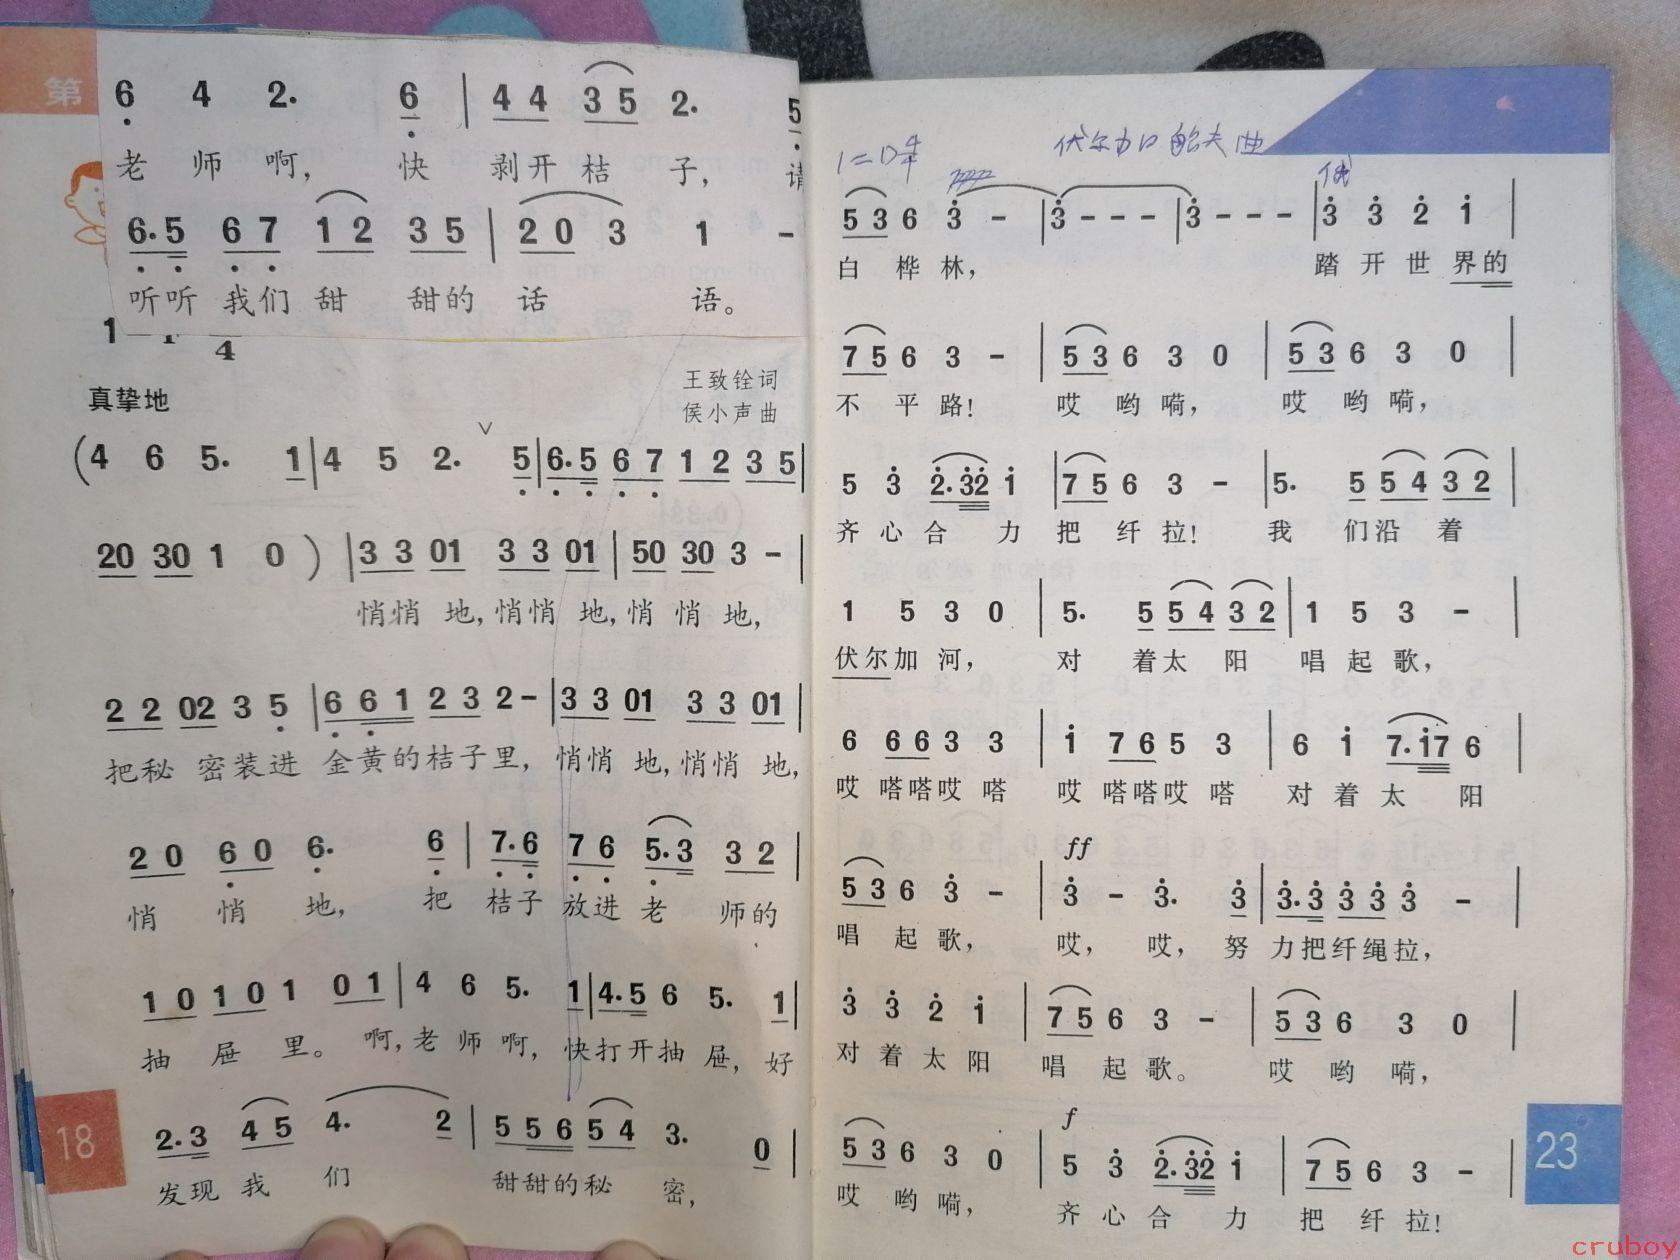 第
6 4 2. 6 | 4 4 3 5 2. 5
老 师 啊, 快 剥开 桔 子, 请
6.5 6 7 1 2 3 5 | 2 0 3 1 -
听听 我们 甜 甜的 话 语。
4
真挚地
王致铨词
侯小声曲
(4 6 5. 1 | 4 5 2. ∨ 5 | 6.5 6 7 1 2 3 5 |
20 30 1 0 ) | 3 3 01 3 3 01 | 50 30 3 - |
悄悄 地, 悄悄 地, 悄 悄 地,
2 2 02 3 5 | 6 6 1 2 3 2 - | 3 3 01 3 3 01 |
把秘 密装进 金黄的桔子里, 悄悄 地, 悄悄 地,
2 0 6 0 6. 6 | 7.6 7 6 5.3 3 2 |
悄 悄 地, 把 桔子 放进 老 师的
1 0 1 0 1 0 1 | 4 6 5. 1 | 4.5 6 5. 1 |
抽 屉 里。 啊, 老 师 啊, 快打开抽 屉, 好
2.3 4 5 4. 2 | 5 5 6 5 4 3. 0 |
发现 我 们 甜甜的秘 密,
18
1=D 4/4 伏尔加船夫曲
俄
5 3 6 3 - | 3 - - - | 3 - - - | 3 3 2 1 |
白 桦 林, 踏 开 世 界的
7 5 6 3 - | 5 3 6 3 0 | 5 3 6 3 0 |
不 平 路! 哎 哟 嗬, 哎 哟 嗬,
5 3 2.32 1 | 7 5 6 3 - | 5. 5 5 4 3 2 |
齐 心 合 力 把 纤 拉! 我 们沿 着
1 5 3 0 | 5. 5 5 4 3 2 | 1 5 3 - |
伏尔加 河, 对 着太 阳 唱 起 歌,
6 6 6 3 3 | 1 7 6 5 3 | 6 1 7.17 6 |
哎 嗒嗒哎 嗒 哎 嗒嗒哎 嗒 对 着 太 阳
ff
5 3 6 3 - | 3 - 3. 3 | 3.3 3 3 3 - |
唱 起 歌, 哎, 哎, 努 力把纤绳拉,
3 3 2 1 | 7 5 6 3 - | 5 3 6 3 0 |
对 着 太 阳 唱 起 歌。 哎 哟 嗬,
f
5 3 6 3 0 | 5 3 2.32 1 | 7 5 6 3 - |
哎 哟 嗬, 齐 心 合 力 把 纤 拉!
23
cruboy